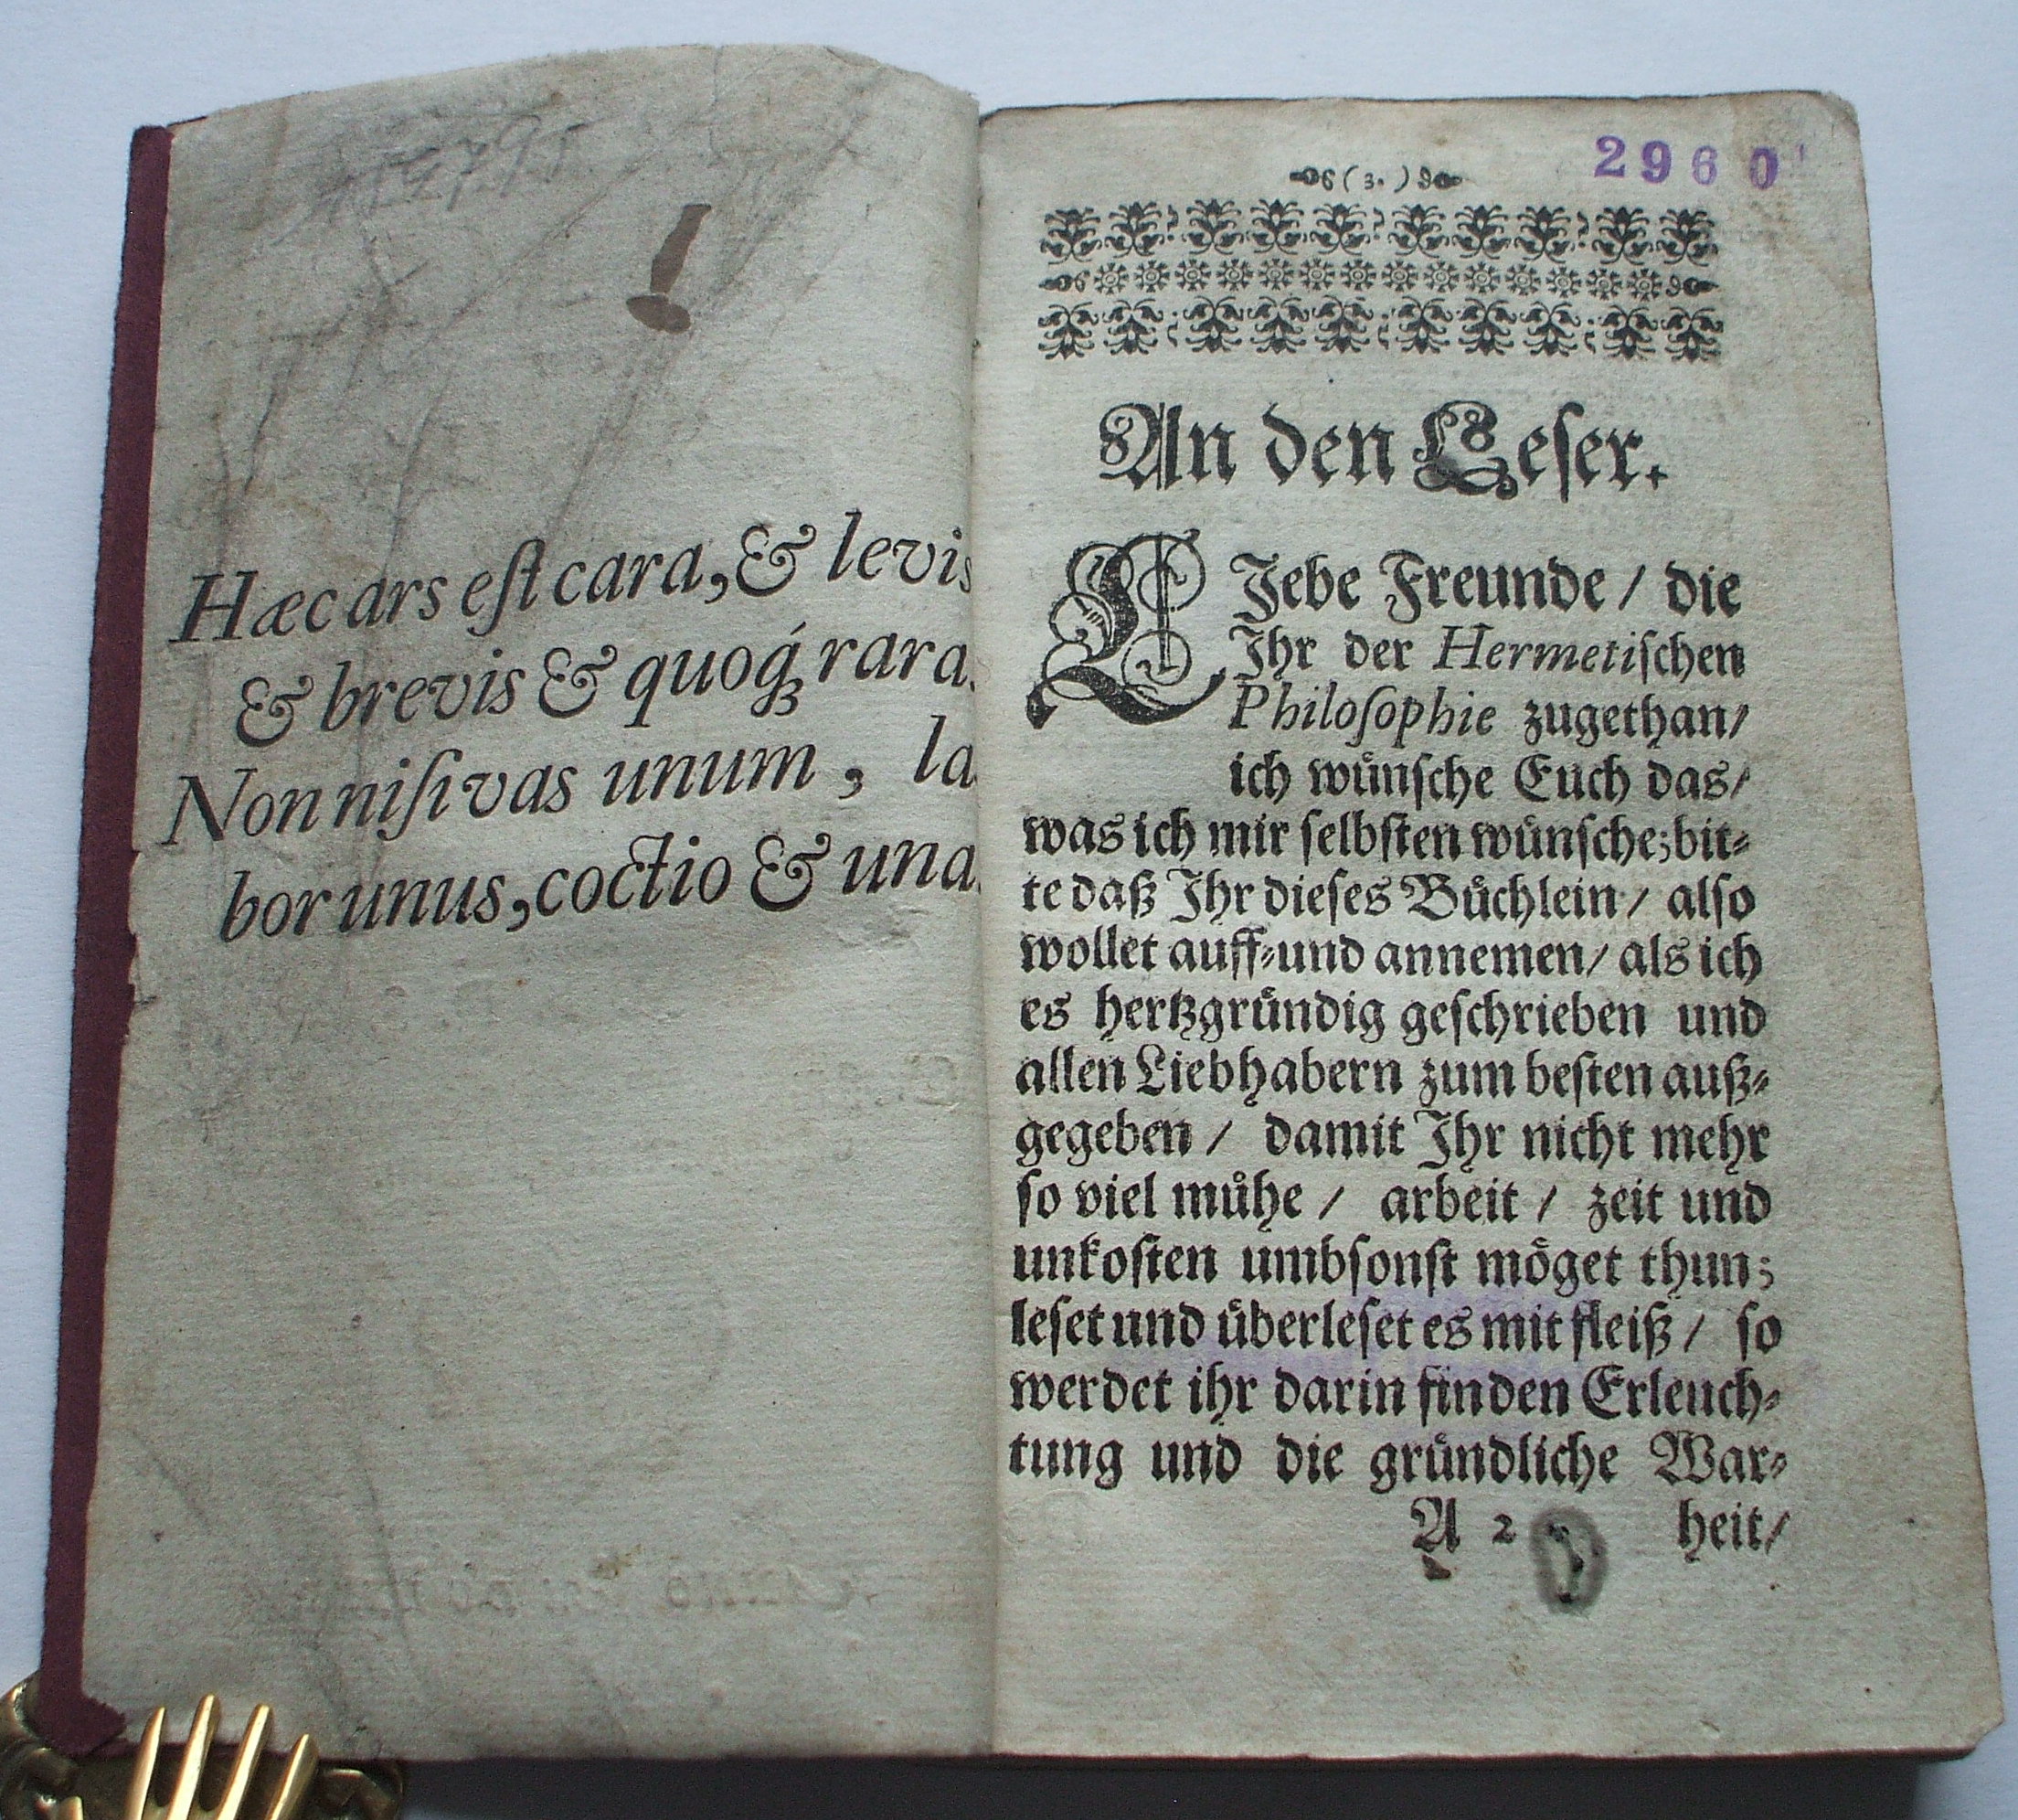 Hæc ars eſt cara, & levis
& brevis & quoq́ꝫ rara.
Non niſi vas unum, la-
bor unus, coctio & una.
2960
(3.)
An den Leſer.
LIebe Freunde / die
Ihr der Hermetiſchen
Philoſophie zugethan/
ich wuͤnſche Euch das/
was ich mir ſelbſten wuͤnſche; bit⸗
te daß Ihr dieſes Buͤchlein / alſo
wollet auff⸗und annemen/ als ich
es hertzgruͤndig geſchrieben und
allen Liebhabern zum beſten auß⸗
gegeben / damit Ihr nicht mehr
ſo viel muͤhe / arbeit / zeit und
unkoſten umbſonſt moͤget thun;
leſet und uͤberleſet es mit fleiß / ſo
werdet ihr darin finden Erleuch⸗
tung und die gruͤndliche War⸗
A 2 heit/